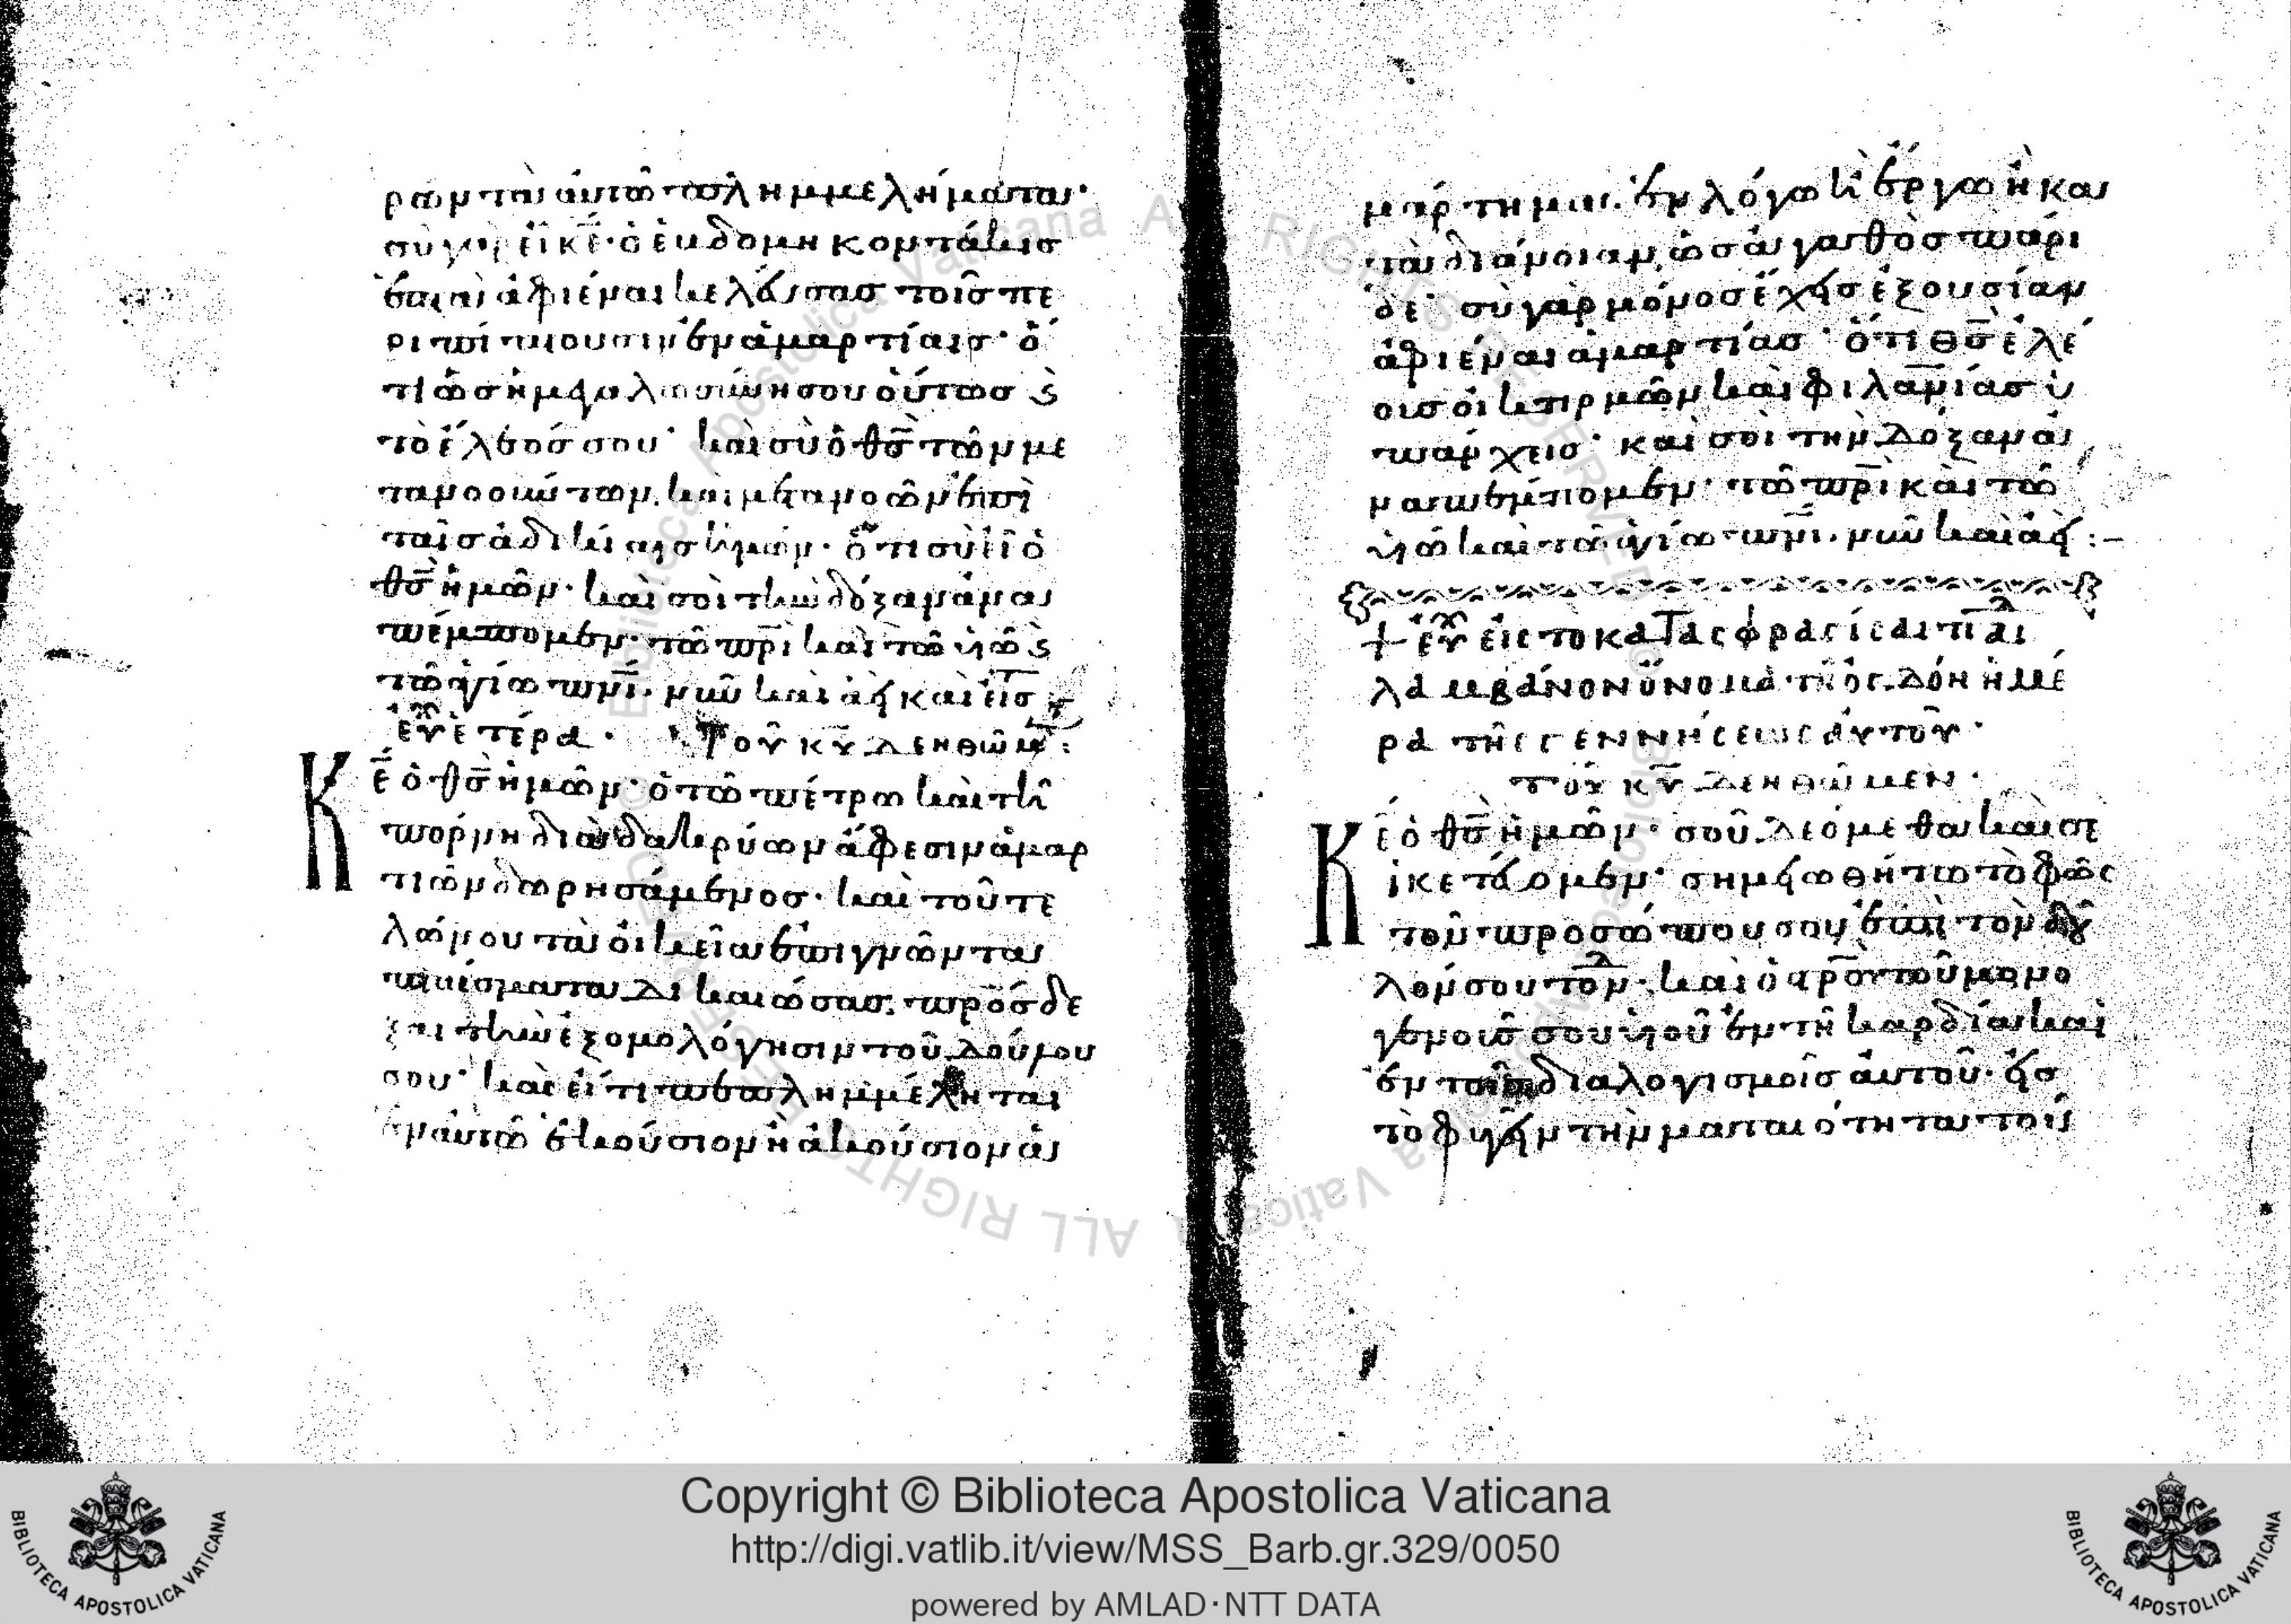 ρων τὰ αὐτῶ πλημμελήματα·
σὺ γὰρ εἶ κε̄· ὁ ἑβδομηκοντάκισ
ἑπτὰ ἀφιέναι κελεύσασ τοῖσ πε
ριπίπτουσιν ἐν ἁμαρτίαισ· ὅ
τι ὡσ ἡ μεγαλωσύνη σου οὕτωσ ϗ
τὸ ἔλεόσ σου· καὶ σὺ ὁ θσ̄ τῶν με
τανοούντων, καὶ μετανοῶν ἐπὶ
ταῖσ ἀδικίαισ ἡμῶν· ὅτι σὺ εἶ ὁ
θσ̄ ἡμῶν· καὶ σοὶ τὴν δόξαν ἀνα
πέμπομεν· τῶ πρῑ καὶ τῶ υἱῶ ϗ
τῶ ἁγίω πνῑ. νῦν καὶ ἀεὶ καὶ εἰσ
εὐχ ἑτέρα. Τοῦ κῡ δεηθῶμ:
Κε̄ ὁ θσ̄ ἡμῶν· ὁ τῶ πέτρω καὶ τῆ
πόρνη διὰ δακρύων ἄφεσιν ἁμαρ
τιῶν δωρησάμενοσ· καὶ τοῦ τε
λώνου τὰ οἰκεῖα ἐπιγνῶντα
πταίσματα δικαιώσασ· πρόσδε
ξαι τὴν ἐξομολόγησιν τοῦ δούλου
σου· καὶ εἴ τι πεπλημμέληται
ἐν αὐτῶ ἑκούσιον ἢ ἀκούσιον ἁ
μάρτημα. ἐν λόγω ἢ ἔργω ἢ κα
τὰ διάνοιαν, ὡσ ἀγαθὸσ πάρι
δε· σὺ γὰρ μόνοσ ἔχεισ ἐξουσίαν
ἀφιέναι ἁμαρτίασ· ὅτι θσ̄ ἐλέ
ουσ οἰκτιρμῶν καὶ φιλανίασ ὑ
πάρχεισ· καὶ σοὶ τὴν δόξαν ἀ
ναπέμπομεν· τῶ πρῑ καὶ τῶ
υἱῶ καὶ τῶ ἁγίω πνῑ. νῦν καὶ ἀεὶ :–
+ εὐχ εἰς τὸ κατασφραγίσαι παι
λαμβάνον ὄνομα· τῆ ὀγδόη ἡμέ
ρα τῆς γεννήσεως αὐτοῦ·
τοῦ κῡ δεηθῶμεν·
Κε̄ ὁ θσ̄ ἡμῶν· σοῦ δεόμεθα καὶ σὲ
ἱκετεύομεν· σημειωθήτω τὸ φῶς
τοῦ προσώπου σου ἐπὶ τὸν δοῦ
λόν σου τόνδε· καὶ ὁ στρο̄σ τοῦ μονο
γενοῦσ σου υἱοῦ ἐν τῆ καρδία καὶ
ἐν τοῖσ διαλογισμοῖσ αὐτοῦ· εἰσ
τὸ φυγεῖν τὴν ματαιότητα τοῦ
Copyright © Biblioteca Apostolica Vaticana
http://digi.vatlib.it/view/MSS_Barb.gr.329/0050
powered by AMLAD·NTT DATA
BIBLIOTECA APOSTOLICA VATICANA
BIBLIOTECA APOSTOLICA VATICANA